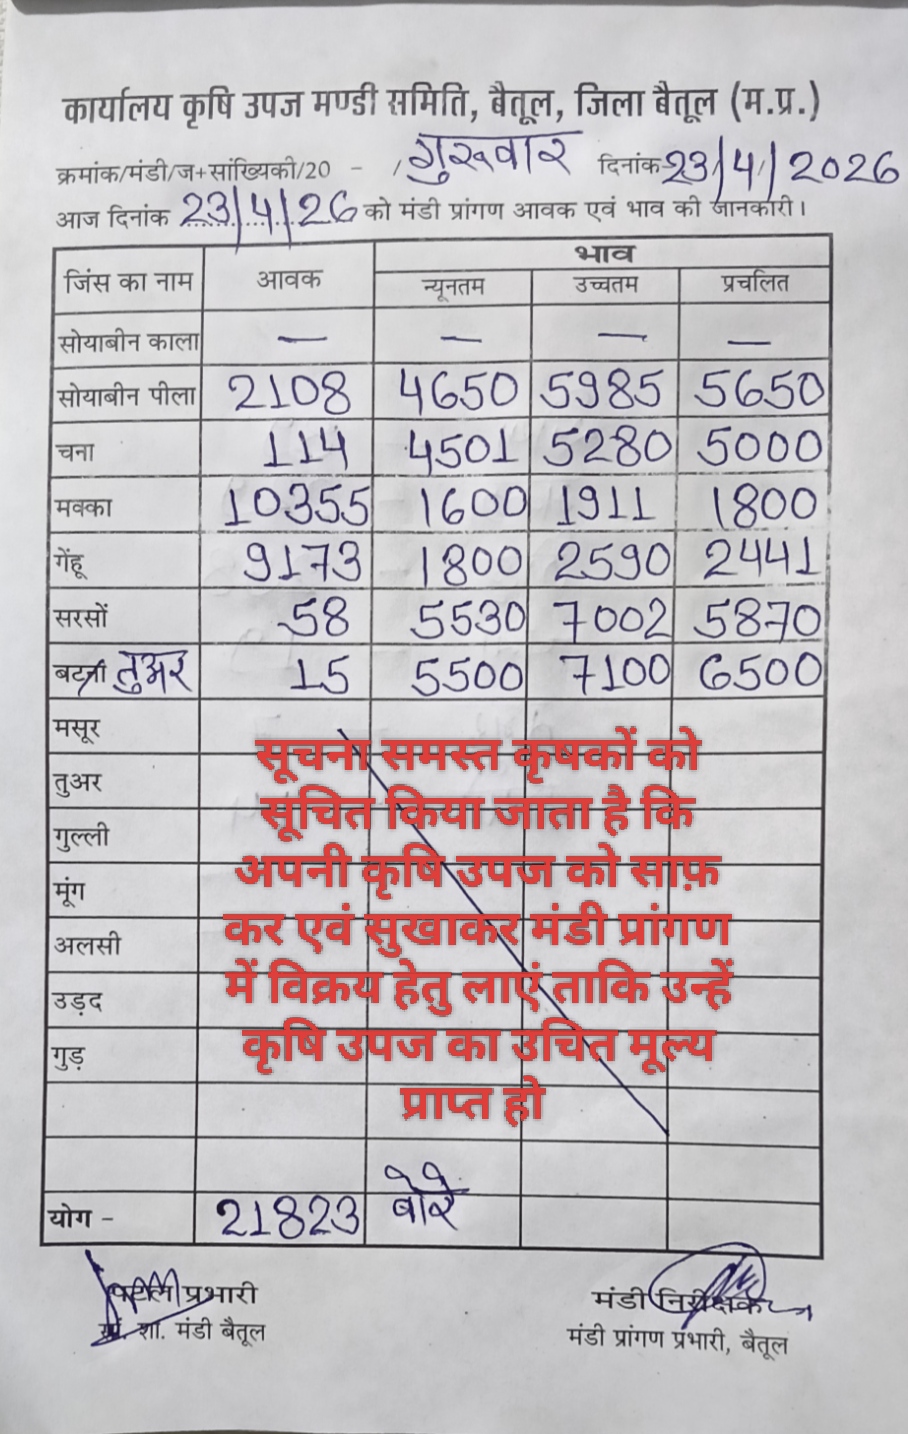 कार्यालय कृषि उपज मण्डी समिति, बैतूल, जिला बैतूल (म.प्र.)
क्रमांक/मंडी/ज+सांख्यिकी/20 - / गुरूवार दिनांक 23/4/2026
आज दिनांक 23/4/26 को मंडी प्रांगण आवक एवं भाव की जानकारी।
जिंस का नाम आवक भाव
न्यूनतम उच्चतम प्रचलित
सोयाबीन काला — — — —
सोयाबीन पीला 2108 4650 5985 5650
चना 114 4501 5280 5000
मक्का 10355 1600 1911 1800
गेंहू 9173 1800 2590 2441
सरसों 58 5530 7002 5870
बटना तुअर 15 5500 7100 6500
मसूर
तुअर
गुल्ली
मूंग
अलसी
उड़द
गुड़
सूचना समस्त कृषकों को
सूचित किया जाता है कि
अपनी कृषि उपज को साफ़
कर एवं सुखाकर मंडी प्रांगण
में विक्रय हेतु लाएं ताकि उन्हें
कृषि उपज का उचित मूल्य
प्राप्त हो
योग - 21823 बोरे
प्रभारी मंडी निरीक्षक
शा. मंडी बैतूल मंडी प्रांगण प्रभारी, बैतूल